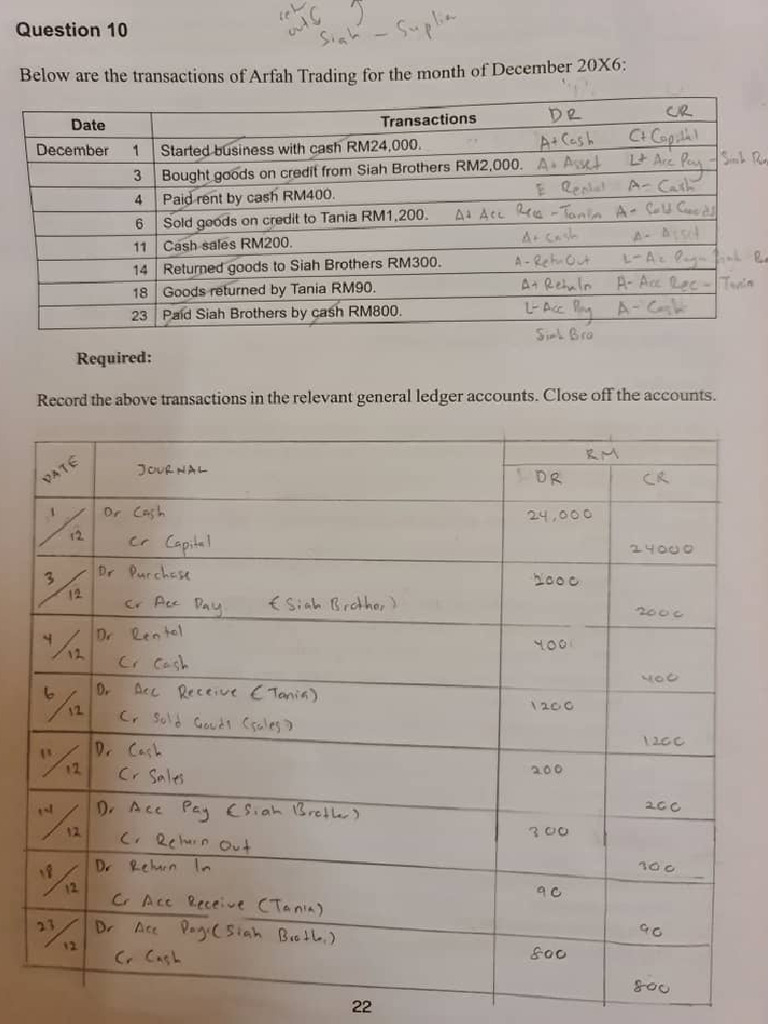 ret
out
Siah - Suplier
Question 10
Below are the transactions of Arfah Trading for the month of December 20X6:
Date Transactions DR CR
December 1 Started business with cash RM24,000. A+ Cash C+ Capital
3 Bought goods on credit from Siah Brothers RM2,000. A+ Asset L+ Acc Pay - Siah
4 Paid rent by cash RM400. E Rental A- Cash
6 Sold goods on credit to Tania RM1,200. A+ Acc Rec - Tania A- Sold Goods
11 Cash sales RM200. A+ Cash A- Asset
14 Returned goods to Siah Brothers RM300. A- Retn Out L- Ac Pay
18 Goods returned by Tania RM90. A+ Retn In A- Acc Rec - Tania
23 Paid Siah Brothers by cash RM800. L- Acc Pay A- Cash
Siah Bro
Required:
Record the above transactions in the relevant general ledger accounts. Close off the accounts.
RM
DATE JOURNAL DR CR
1/12 Dr Cash 24,000
Cr Capital 24000
3/12 Dr Purchase 2000
Cr Acc Pay (Siah Brother) 2000
4/12 Dr Rental 400
Cr Cash 400
6/12 Dr Acc Receive (Tania) 1200
Cr Sold Goods (sales) 1200
11/12 Dr Cash 200
Cr Sales 200
14/12 Dr Acc Pay (Siah Brother) 300
Cr Return Out 300
18/12 Dr Return In 90
Cr Acc Receive (Tania) 90
23/12 Dr Acc Pay (Siah Brother) 800
Cr Cash 800
22